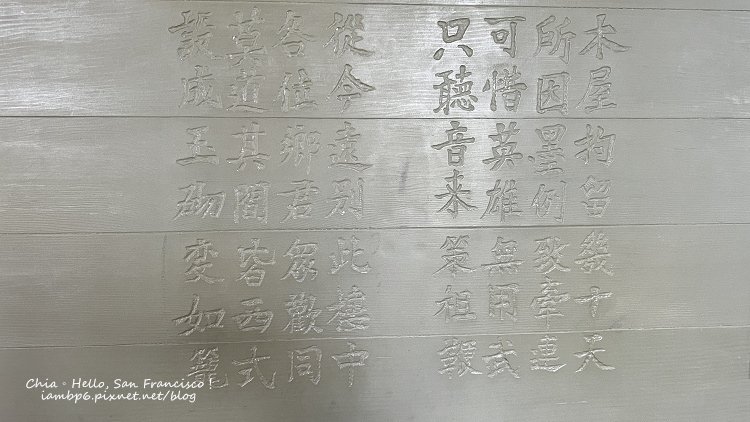 木屋拘留幾十天
所因墨例致牽連
可惜英雄無用武
只聽音來策祖鞭
從今遠別此樓中
各位鄉君眾歡同
莫道其間皆西式
設成玉砌變如籠
Chia。Hello, San Francisco
iambp6.pixnet.net/blog